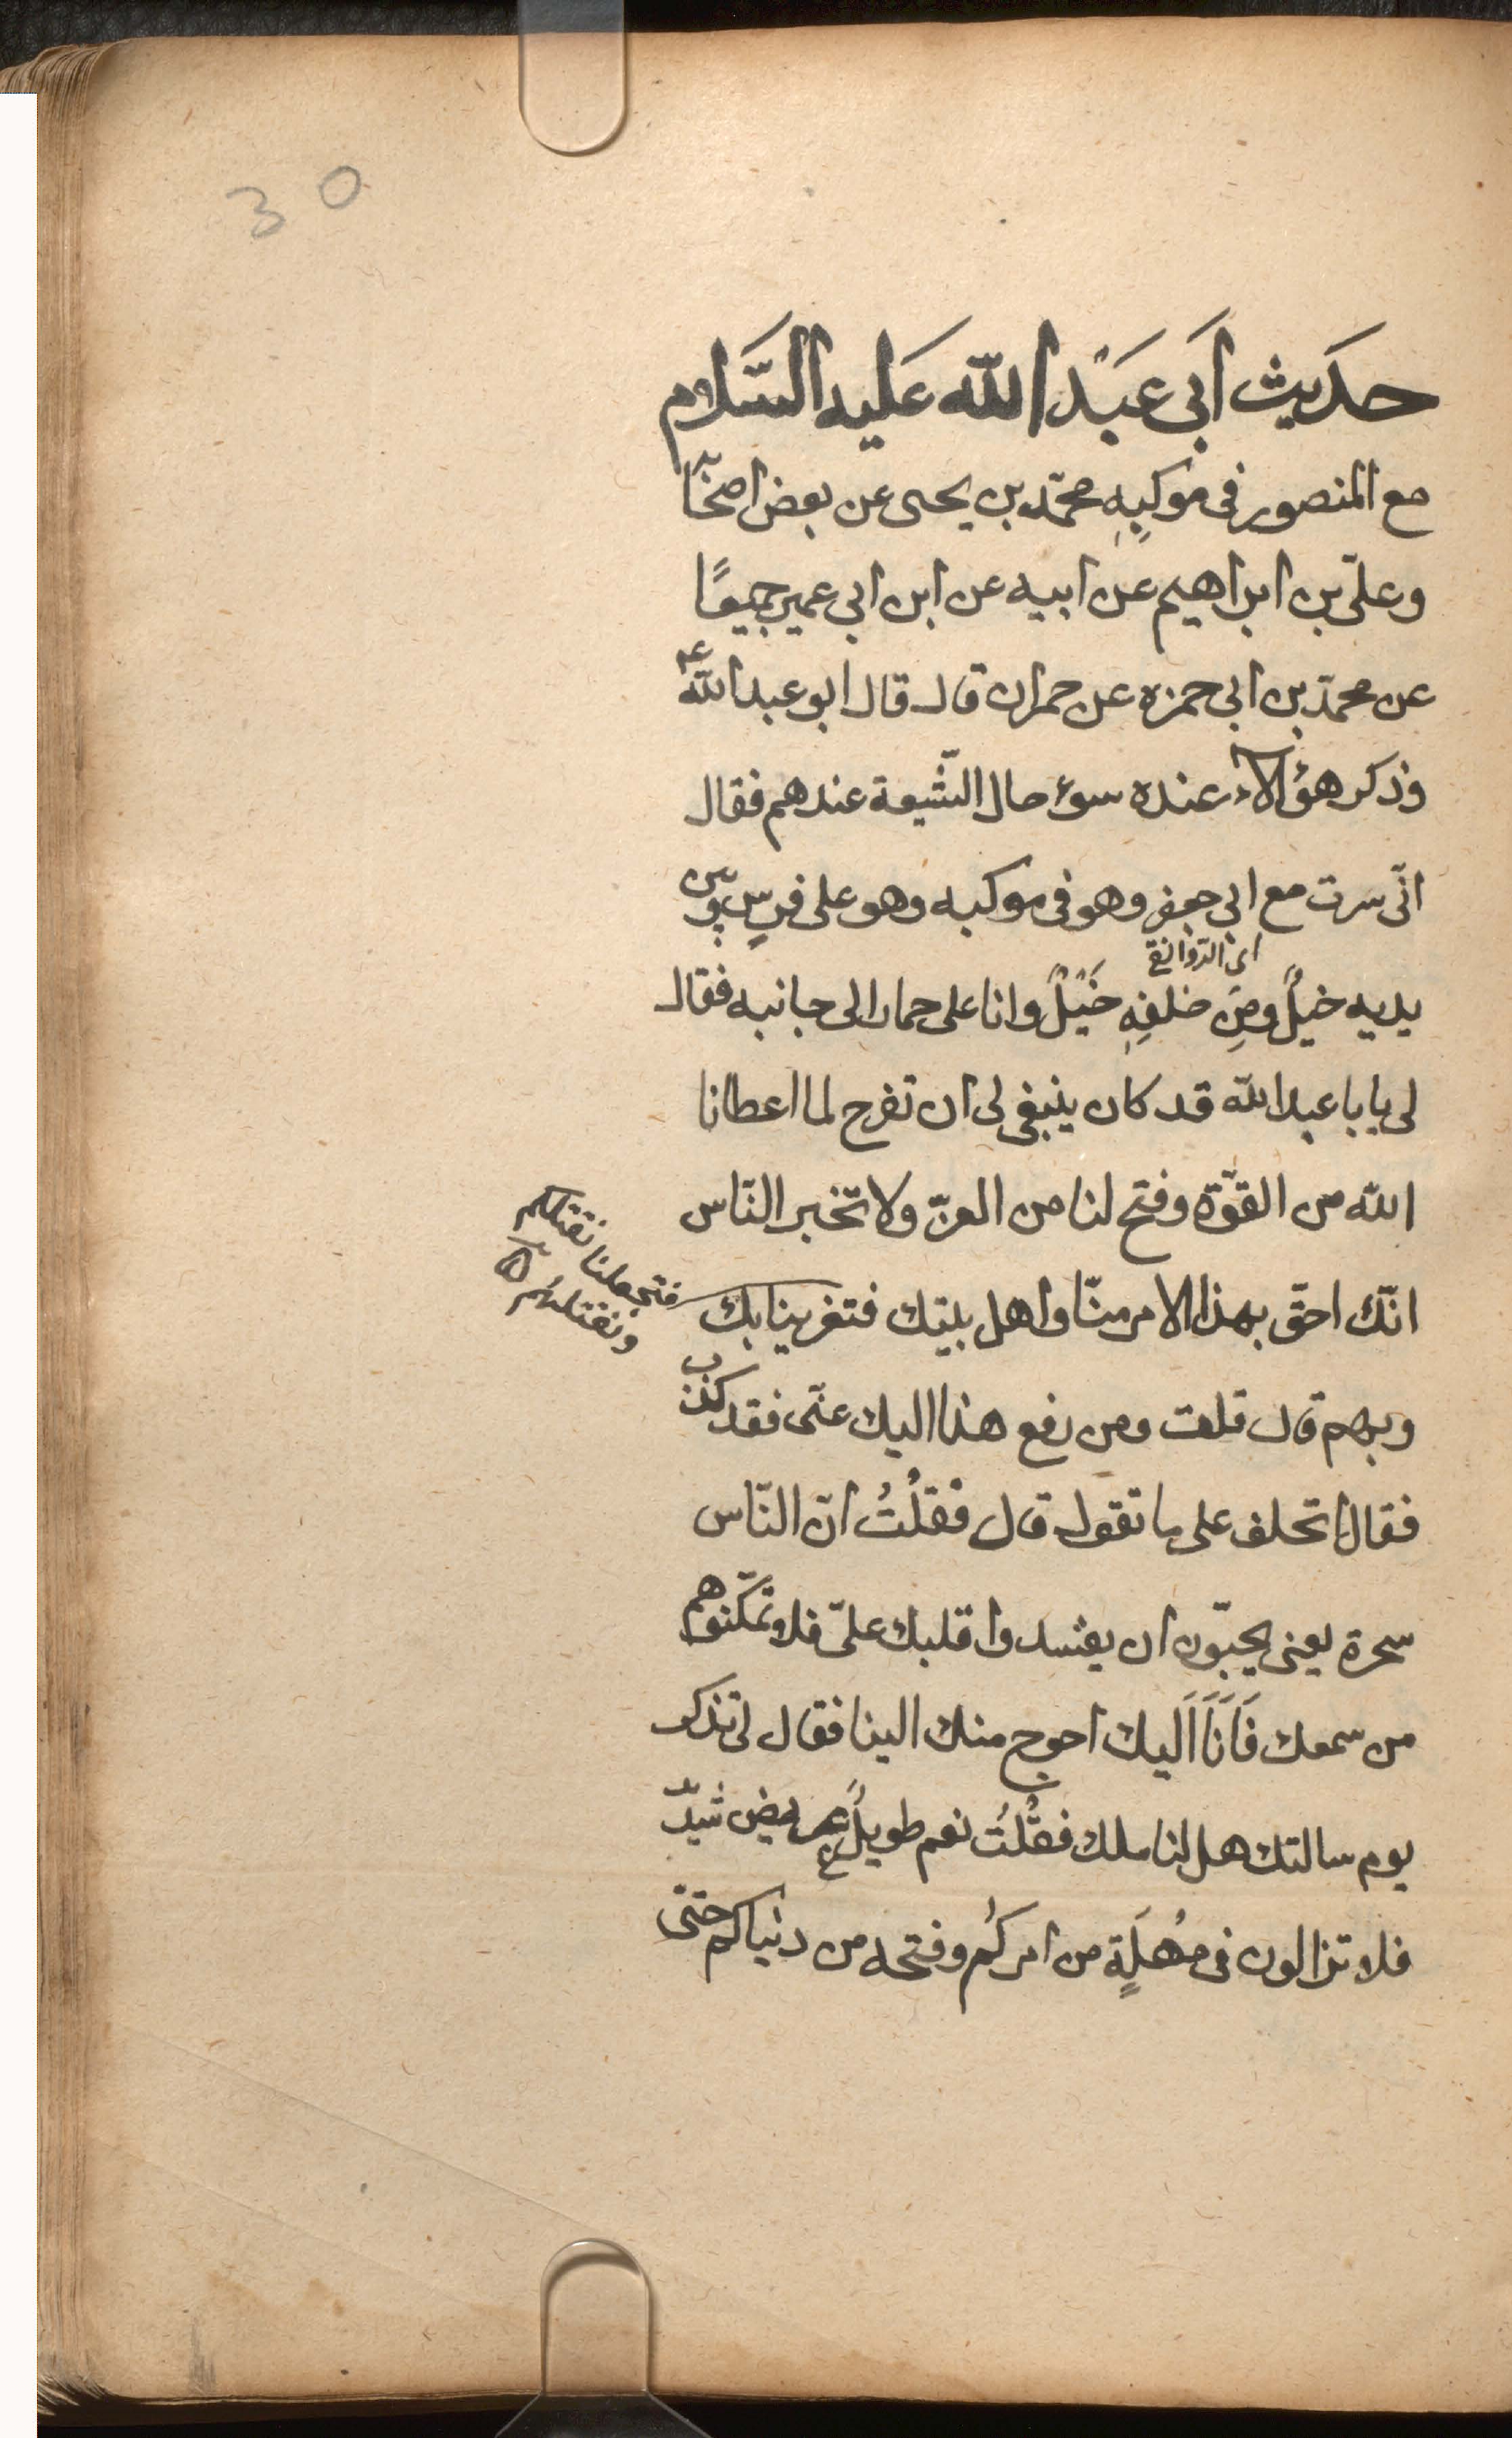 30
حدَيث اَبى عَبَد الله عَليه السَّلام
مع المنصور فى موكبِهِ محمّد بن يحيى عن بعض اصحابنا
وعلىّ بن ابراهيم عن ابيه عن ابن ابى عمير جميعًا
عن محمّد بن ابى حمزه عن حمران قال قال ابو عبد الله ع
وذكر هؤلاء عنده سوء حال الشّيعة عندهم فقال
انّى سرت مع ابى جعفر وهو فى موكبه وهو على فرسٍ وبين
اى الدوانقى
يديه خيلٌ ومِن خلفِهِ خَيْلٌ وانا على حمار الى جانبه فقال
لى يابا عبد الله قد كان ينبغى لى ان تفرح لما اعطانا
الله من القوّة وفتح لنا من العزّ ولا تخبر النّاس
انّك احقّ بهذا الامر منّا واهل بيتك فتغرينا بك
فتجعلنا نقتلكم
ونقتلهُم
وبهم قال قلت ومن رفع هذا اليك عنّى فقد كذب
فقال اتحلف على ما تقول قال فقلْتُ انّ النّاس
سحرة يعنى يحبّون ان يفسدوا قلبك علىّ فلا تمكّنوهم
من سمعك فَاَنَا اَليك احوج منك الينا فقال لى تذكر
يوم سالتك هل لنا ملك فقلْتُ نعم طويلٌ عريض شديد
فلا تزالون فى مُهلَةٍ من امركُم وفتحه من دنياكم حتىّ